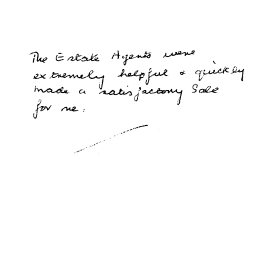 The Estate Agents were
extremely helpful & quickly
made a satisfactory Sale
for me.